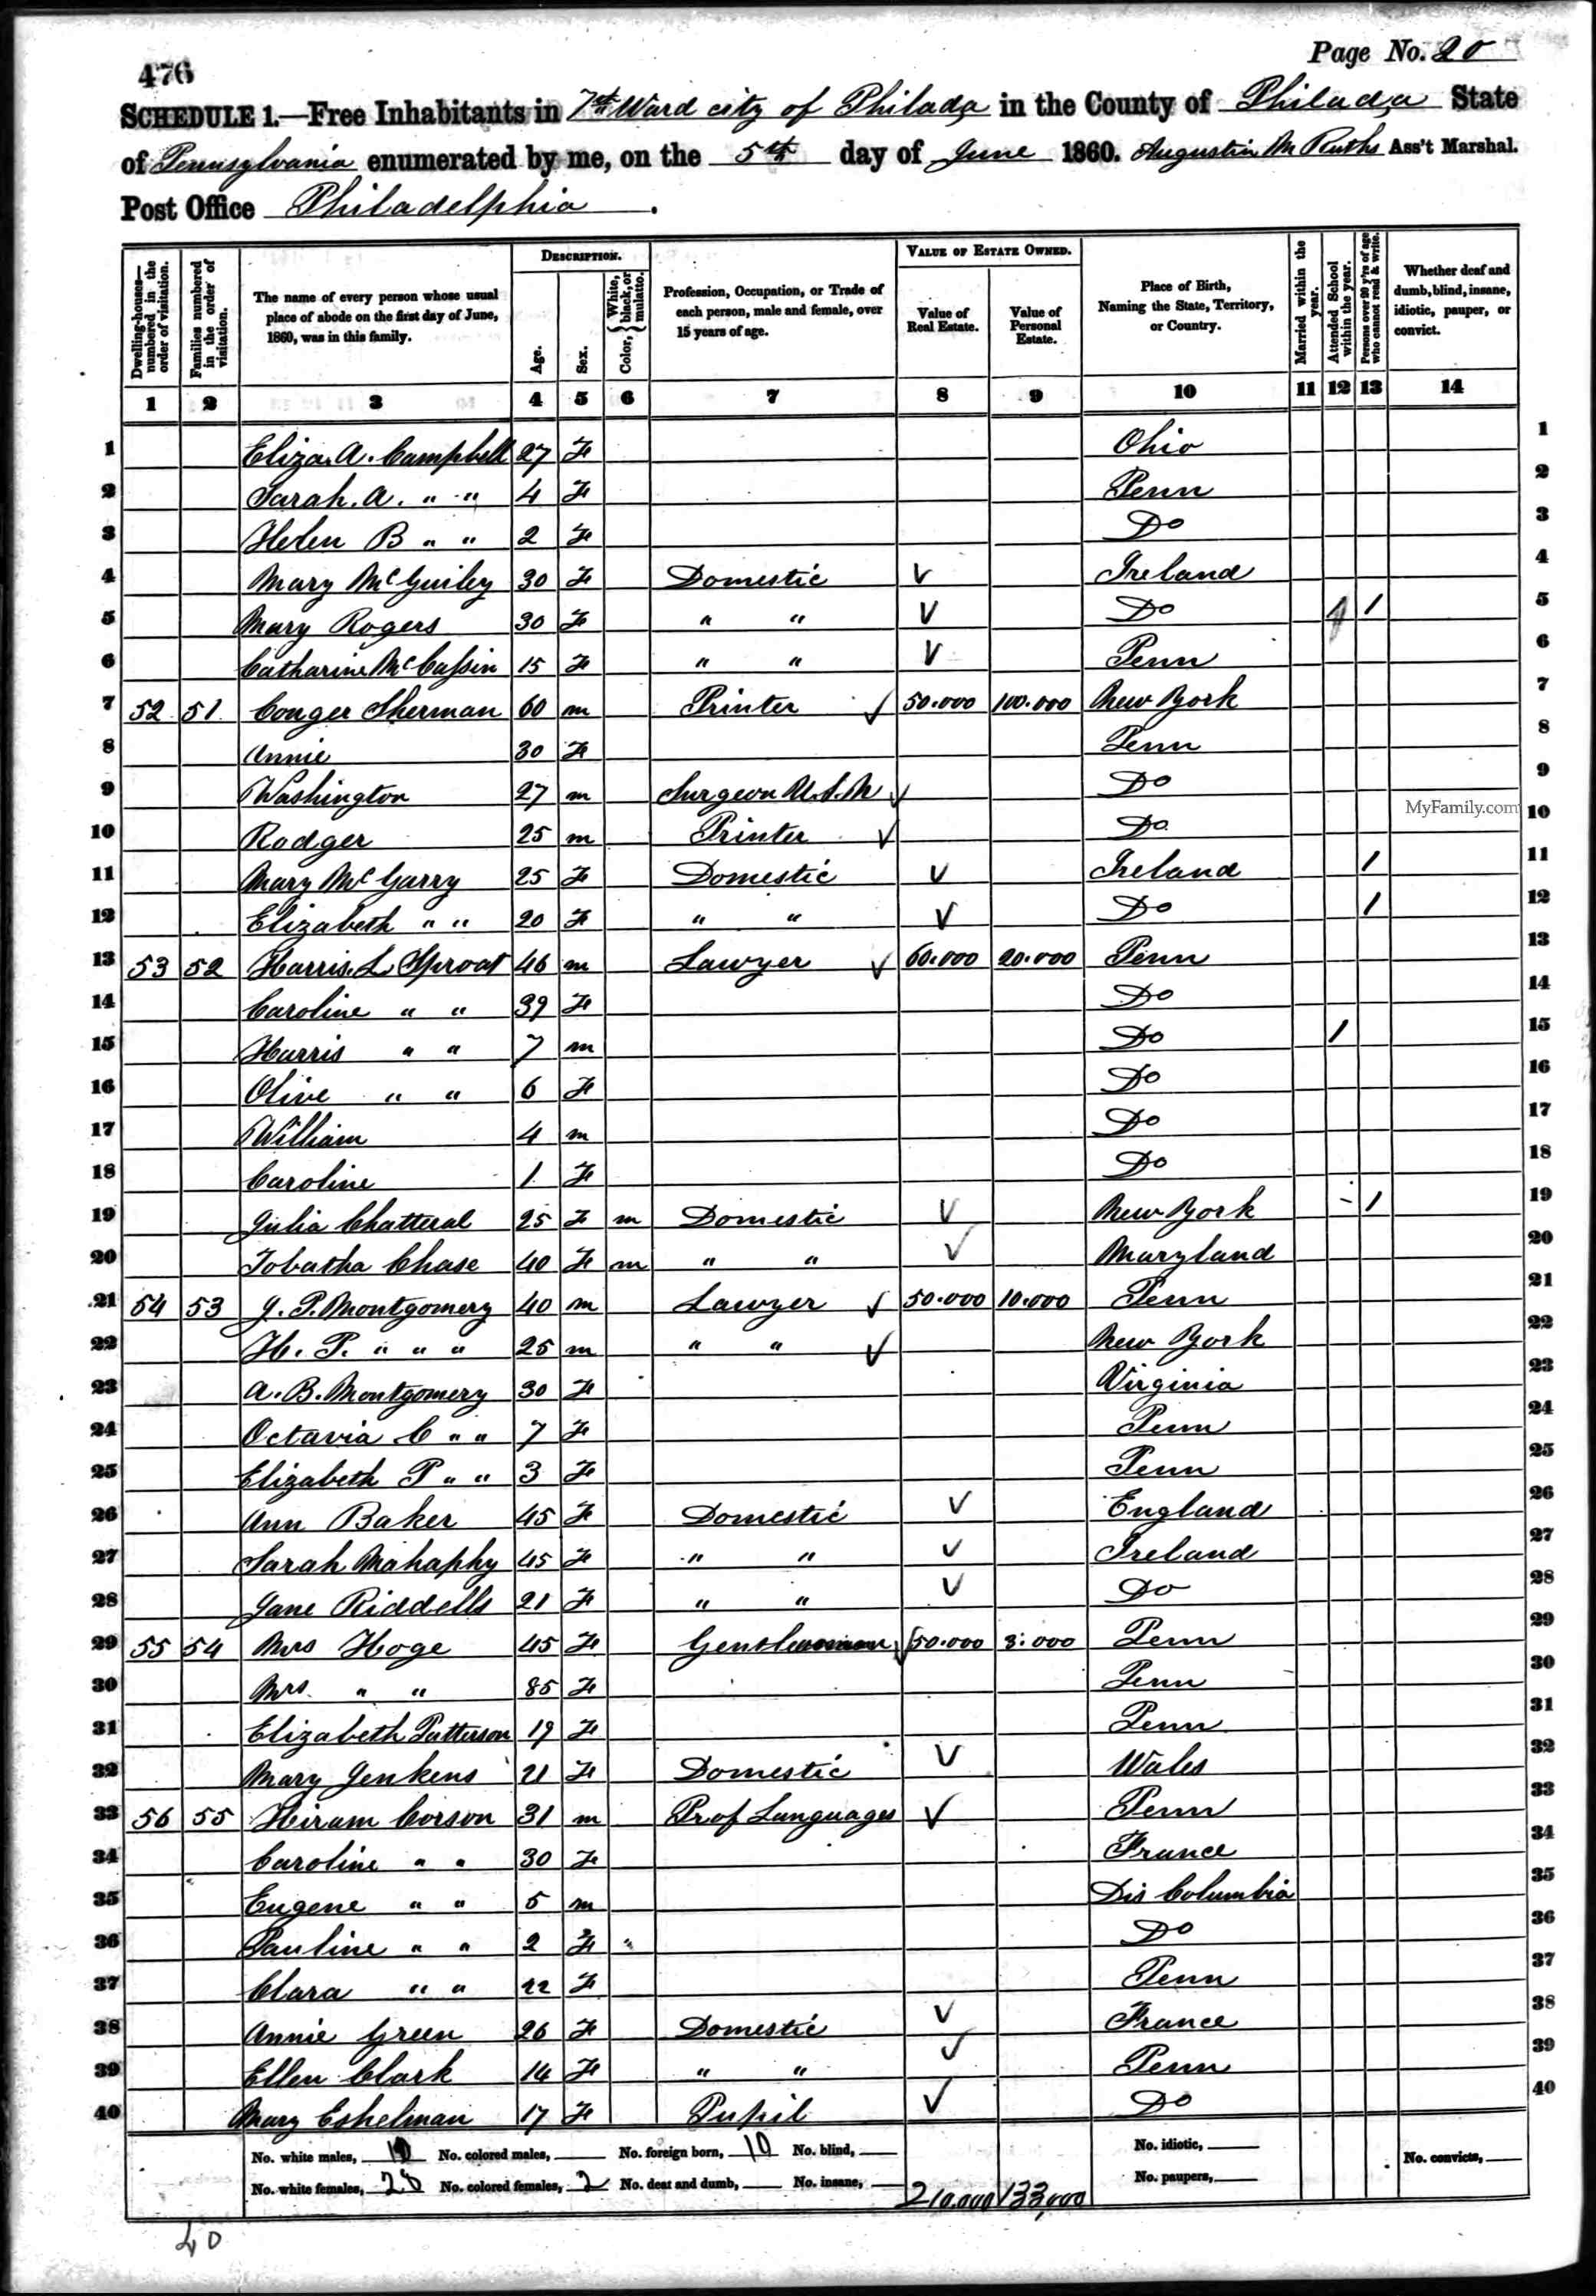 476
Page No. 20
SCHEDULE 1.—Free Inhabitants in 7th Ward city of Philada in the County of Philada State
of Pennsylvania enumerated by me, on the 5th day of June 1860. Augustin M Ruths Ass't Marshal.
Post Office Philadelphia .
Dwelling-houses—numbered in the order of visitation.
Families numbered in the order of visitation.
The name of every person whose usual place of abode on the first day of June, 1860, was in this family.
DESCRIPTION.
Age.
Sex.
Color, { White, black, or mulatto.
Profession, Occupation, or Trade of each person, male and female, over 15 years of age.
VALUE OF ESTATE OWNED.
Value of Real Estate.
Value of Personal Estate.
Place of Birth, Naming the State, Territory, or Country.
Married within the year.
Attended School within the year.
Persons over 20 y'rs of age who cannot read & write.
Whether deaf and dumb, blind, insane, idiotic, pauper, or convict.
1 2 3 4 5 6 7 8 9 10 11 12 13 14
1 Eliza A. Campbell 27 F Ohio 1
2 Sarah. A. " " 4 F Penn 2
3 Helen B " " 2 F Do 3
4 Mary McGuiley 30 F Domestic √ Ireland 4
5 Mary Rogers 30 F " " √ Do 1 / 5
6 Catharine McCassin 15 F " " √ Penn 6
7 52 51 Conger Sherman 60 m Printer √ 50.000 100.000 New York 7
8 Annie 30 F Penn 8
9 Washington 27 m Surgeon U.S.N √ Do 9
MyFamily.com
10 Rodger 25 m Printer √ Do 10
11 Mary McGarry 25 F Domestic √ Ireland / 11
12 Elizabeth " " 20 F " " √ Do / 12
13 53 52 Harris L Sproat 46 m Lawyer √ 60.000 20.000 Penn 13
14 Caroline " " 39 F Do 14
15 Harris " " 7 m Do / 15
16 Olive " " 6 F Do 16
17 William 4 m Do 17
18 Caroline 1 F Do 18
19 Julia Chatteral 25 F m Domestic √ New York / 19
20 Tobatha Chase 40 F m " " √ Maryland 20
21 54 53 J. P. Montgomery 40 m Lawyer √ 50.000 10.000 Penn 21
22 H. P. " " " 25 m " " √ New York 22
23 A. B. Montgomery 30 F Virginia 23
24 Octavia C " " 7 F Penn 24
25 Elizabeth P " " 3 F Penn 25
26 Ann Baker 45 F Domestic √ England 26
27 Sarah Mahaphy 45 F " " √ Ireland 27
28 Jane Riddells 21 F " " √ Do 28
29 55 54 Mrs Hoge 45 F Gentlewoman √ 50.000 3.000 Penn 29
30 Mrs. " " 85 F Penn 30
31 Elizabeth Patterson 19 F Penn 31
32 Mary Jenkens 21 F Domestic √ Wales 32
33 56 55 Hiram Corson 31 m Prof Languages √ Penn 33
34 Caroline " " 30 F France 34
35 Eugene " " 5 m Dis Columbia 35
36 Pauline " " 2 F " Do 36
37 Clara " " 22 F Penn 37
38 Annie Green 26 F Domestic √ France 38
39 Ellen Clark 14 F " " √ Penn 39
40 Mary Eshelman 17 F Pupil √ Do 40
No. white males, 10 No. colored males, No. foreign born, 10 No. blind, No. idiotic, No. convicts,
No. white females, 28 No. colored females, 2 No. deaf and dumb, No. insane, 210.000 133,000 No. paupers,
40